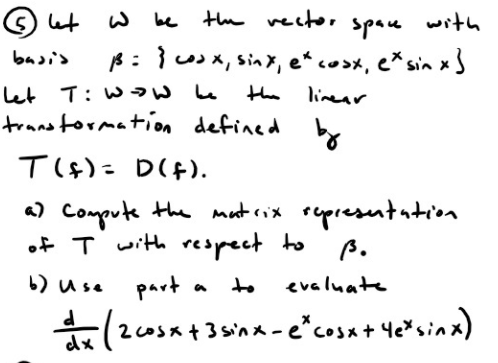 ⑤ Let W be the vector space with
basis β = { cos x, sin x, eˣ cos x, eˣ sin x }
Let T: W → W be the linear
transformation defined by
T(f) = D(f).
a) Compute the matrix representation
of T with respect to β.
b) Use part a to evaluate
d/dx (2 cos x + 3 sin x - eˣ cos x + 4eˣ sin x)